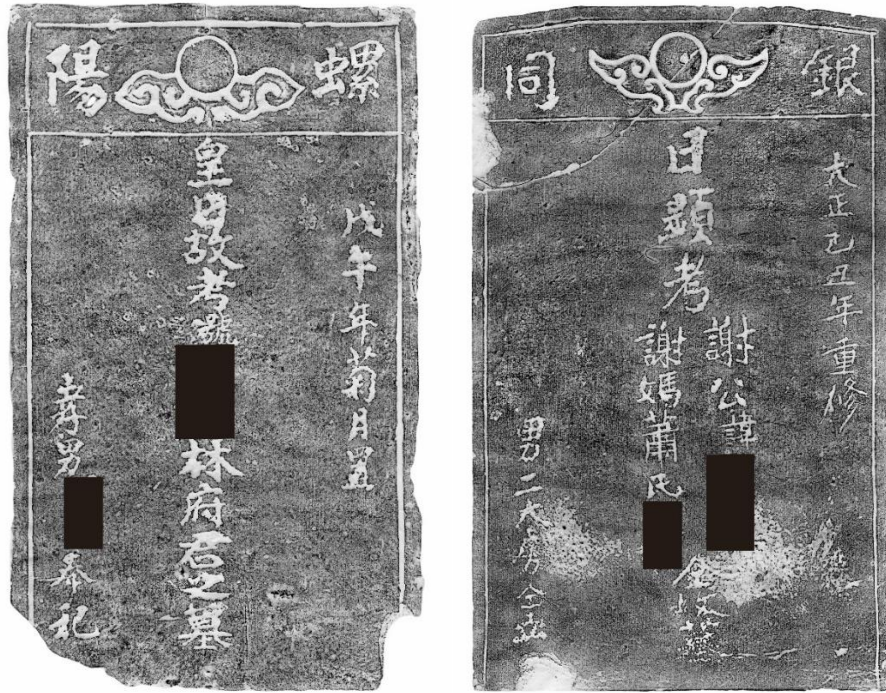 螺陽
戊午年菊月置
皇日故考號
林府君之墓
孝男
奉祀
銀同
大正己丑年重修
日顯考
謝公諱
謝媽蕭氏
男二大房仝